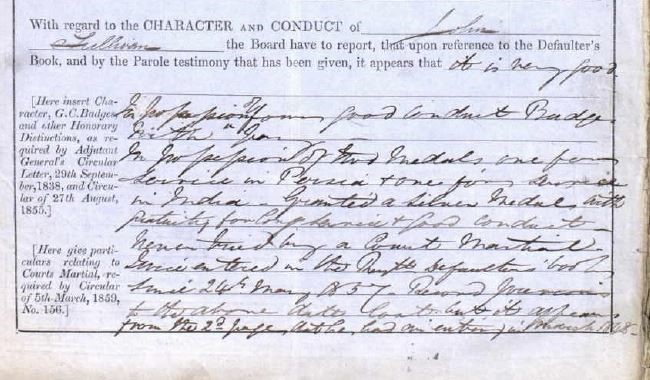 With regard to the CHARACTER AND CONDUCT of John
Sullivan the Board have to report, that upon reference to the Defaulter's
Book, and by the Parole testimony that has been given, it appears that it is very good
[Here insert Cha-
racter, G.C. Badges
and other Honorary
Distinctions, as re-
quired by Adjutant
General's Circular
Letter, 29th Septem-
ber, 1838, and Circu-
lar of 27th August,
1855.]
In possession of four good conduct Badges
In possession of two Medals one for
Service in Persia & one for Service
in India - Granted a Silver Medal with
gratuity for Long Service & Good Conduct
[Here give parti-
culars relating to
Courts Martial, re-
quired by Circular
of 5th March, 1859,
No. 156.]
Never tried by a Court Martial
Once entered in the Regtl Defaulters book
Since 24th May 1857 Record previous
to the above date lost but it appears
from the 2d page, that he had an entry in March